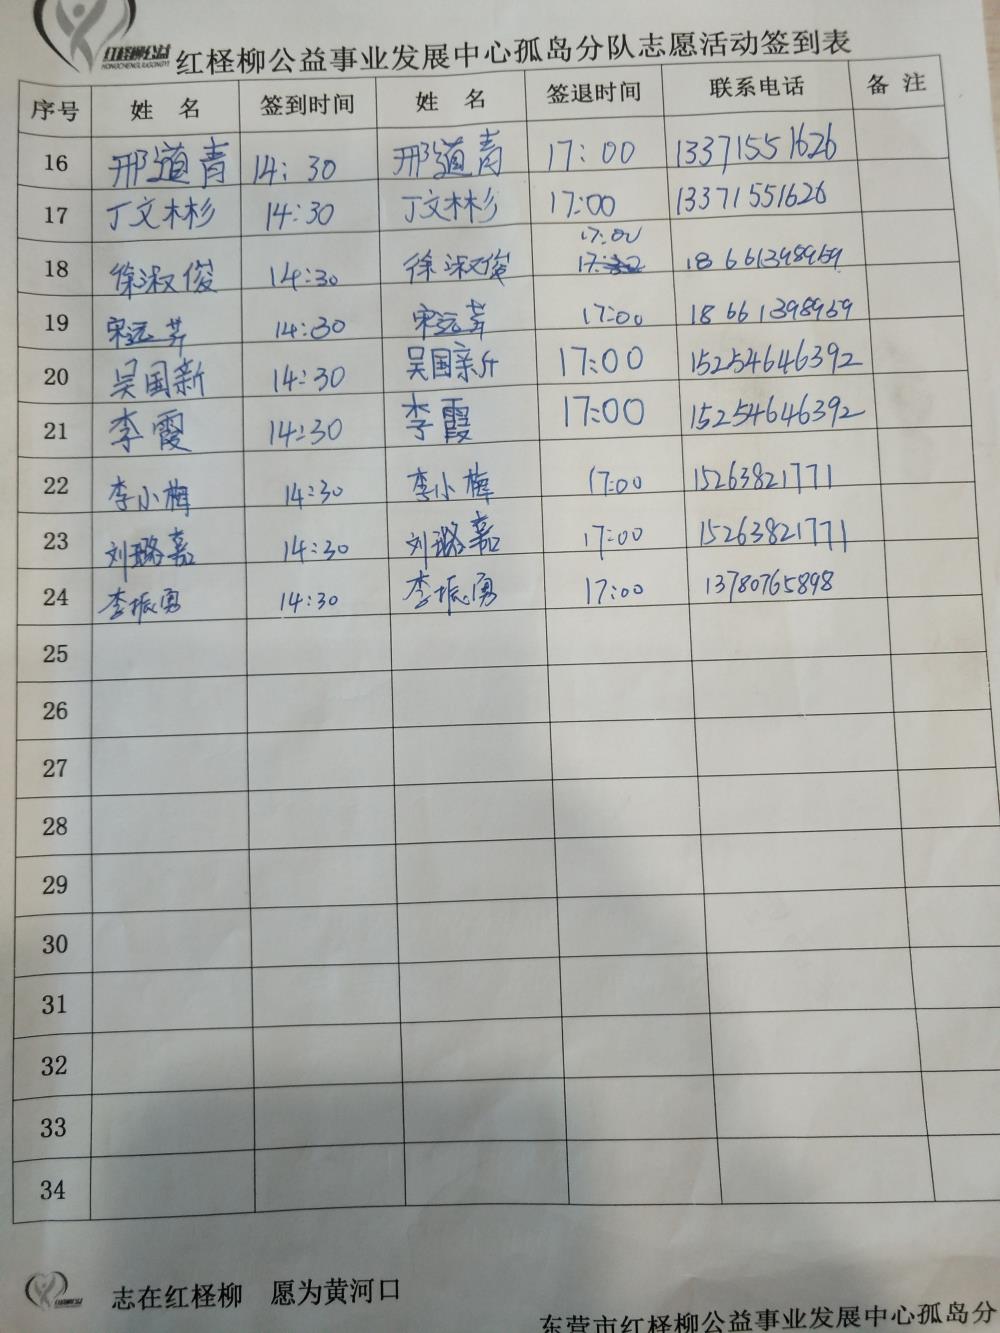 红柽柳公益
HONGCHENGLIUGONGYI
红柽柳公益事业发展中心孤岛分队志愿活动签到表
序号 姓 名 签到时间 姓 名 签退时间 联系电话 备 注
16 邢道青 14:30 邢道青 17:00 13371551626
17 丁文林杉 14:30 丁文林杉 17:00 13371551626
17:00
18 徐淑俊 14:30 徐淑俊 18661398959
19 宋远 14:30 宋远 17:00 18661398959
20 吴国新 14:30 吴国新 17:00 15254646392
21 李霞 14:30 李霞 17:00 15254646392
22 李小梅 14:30 李小梅 17:00 15263821771
23 刘璐嘉 14:30 刘璐嘉 17:00 15263821771
24 李振勇 14:30 李振勇 17:00 13780765898
25
26
27
28
29
30
31
32
33
34
志在红柽柳 愿为黄河口
东营市红柽柳公益事业发展中心孤岛分